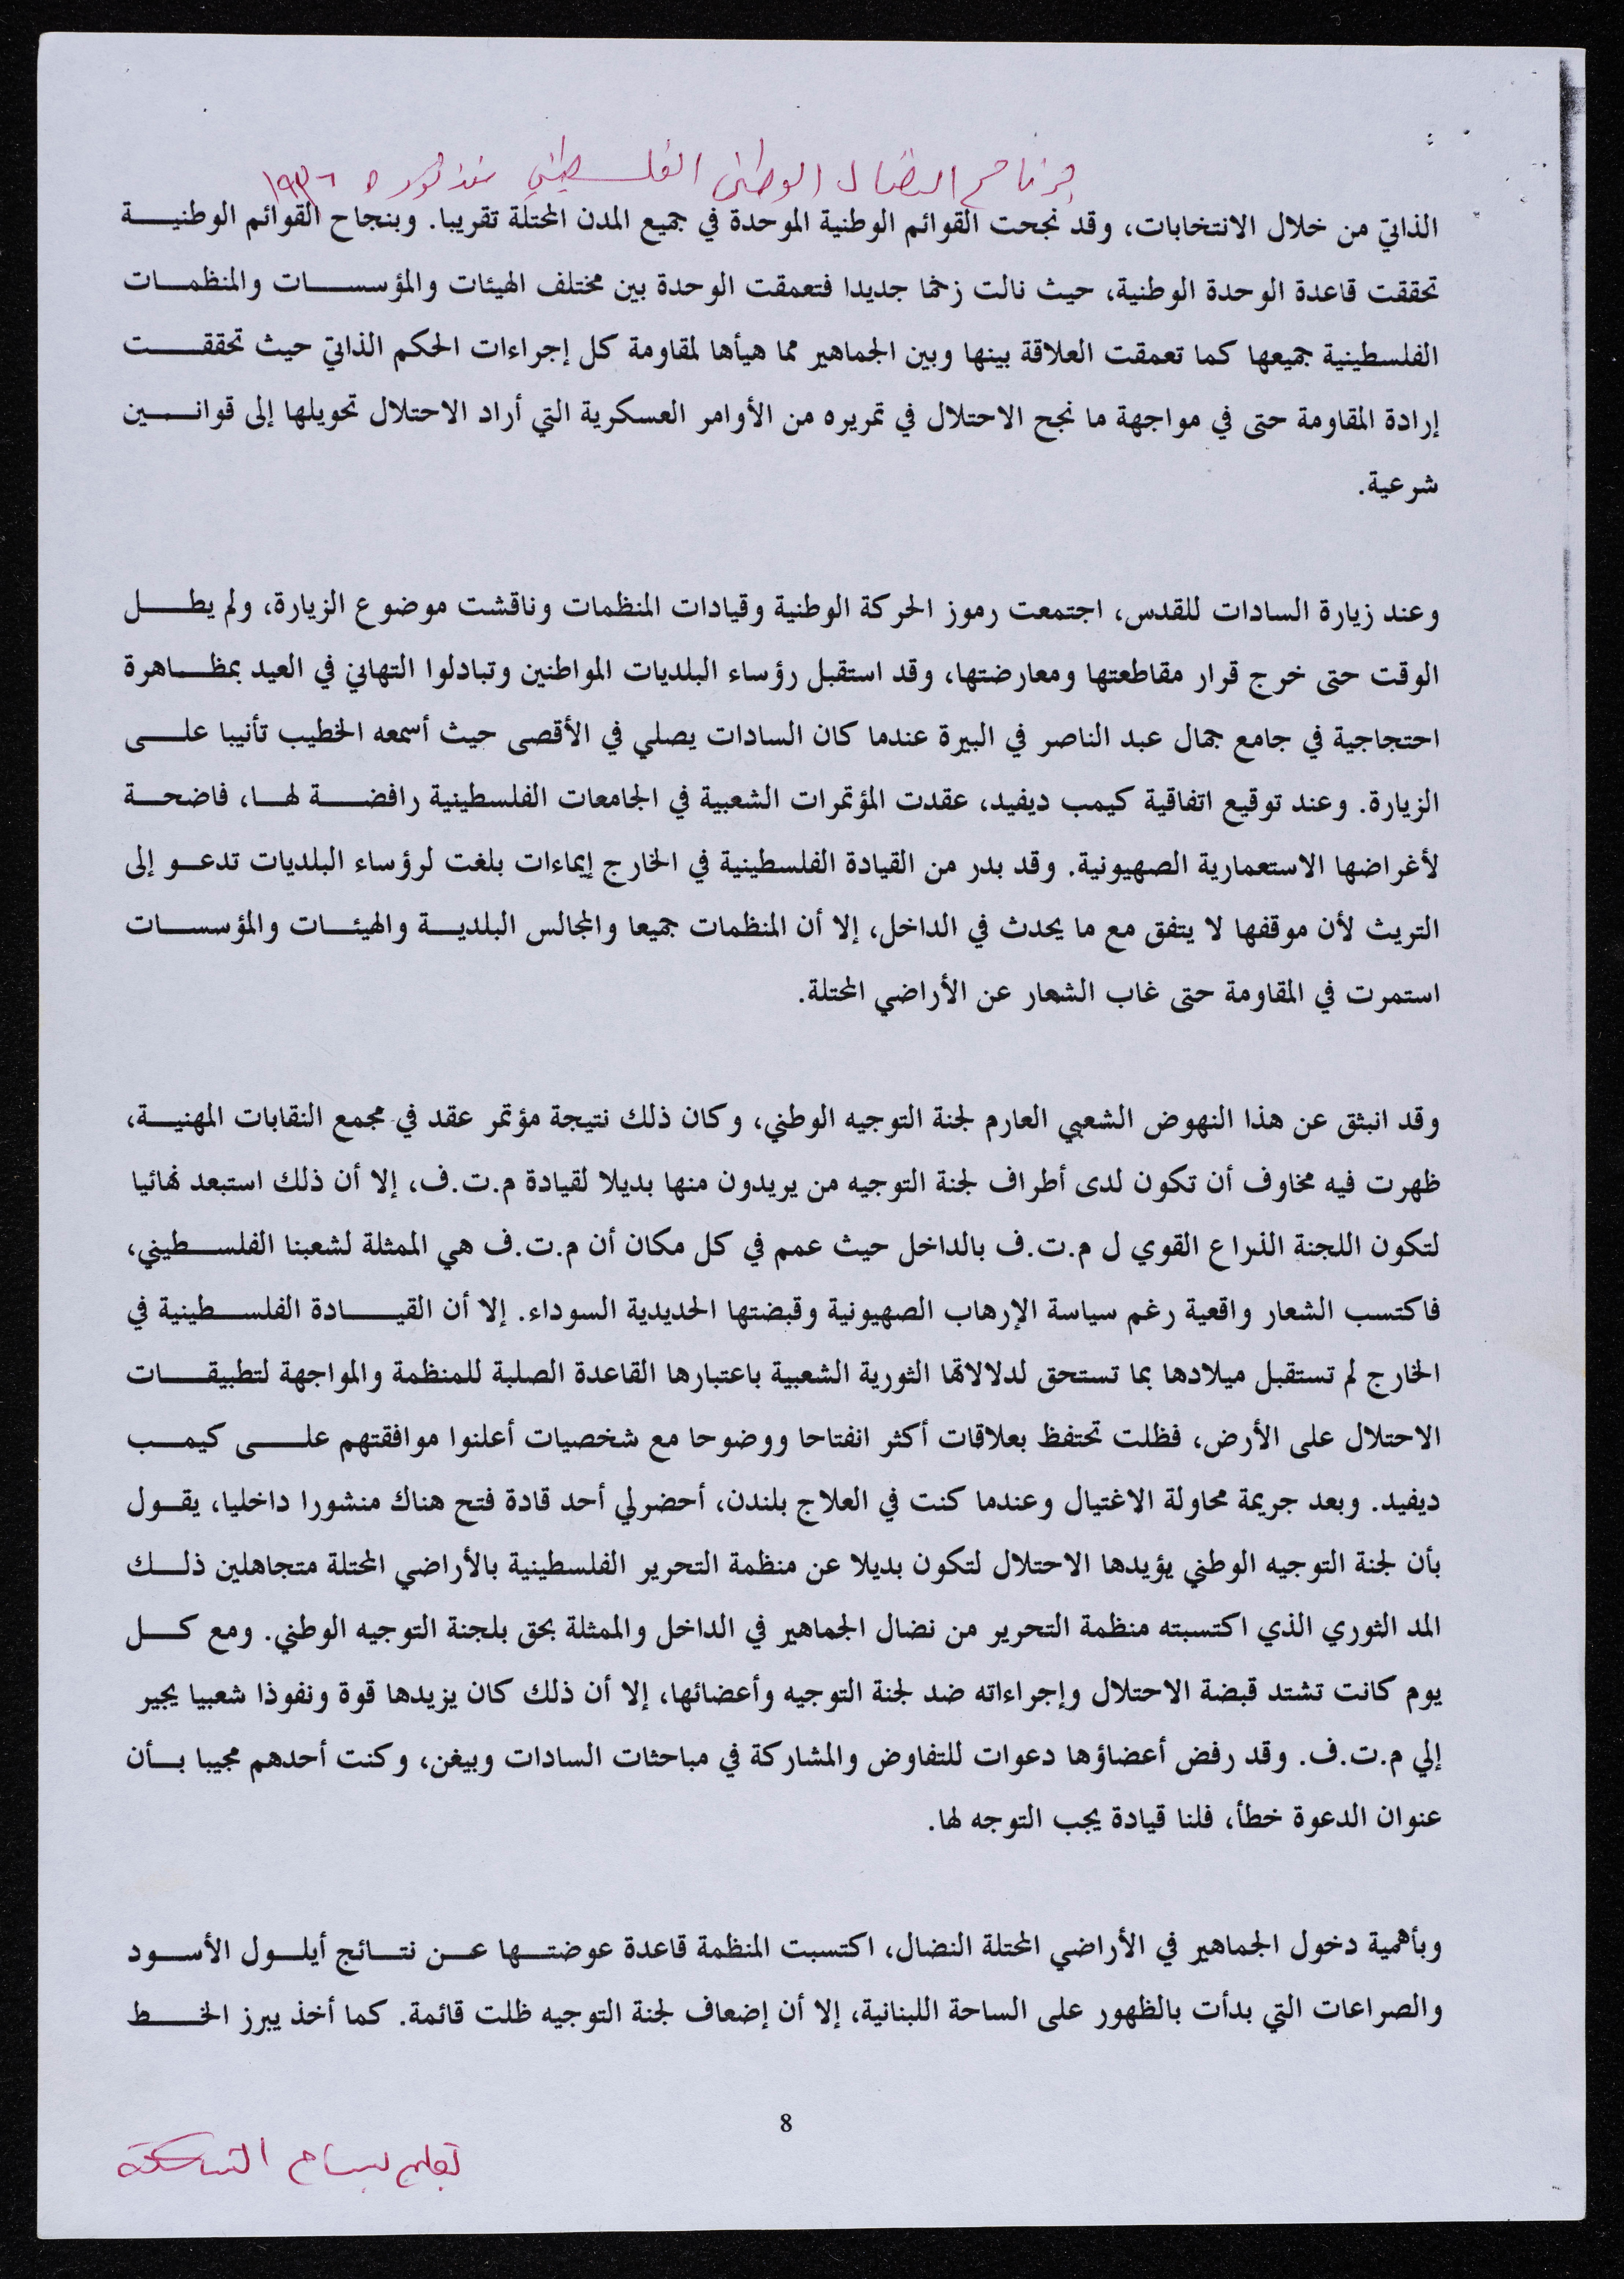 برنامج النضال الوطني الفلسطيني منذ ثورة ١٩٣٦
الذاتي من خلال الانتخابات، وقد نجحت القوائم الوطنية الموحدة في جميع المدن المحتلة تقريبا. وبنجاح القوائم الوطنية
تحققت قاعدة الوحدة الوطنية، حيث نالت زخما جديدا فتعمقت الوحدة بين مختلف الهيئات والمؤسسات والمنظمات
الفلسطينية جميعها كما تعمقت العلاقة بينها وبين الجماهير مما هيأها لمقاومة كل إجراءات الحكم الذاتي حيث تحققت
إرادة المقاومة حتى في مواجهة ما نجح الاحتلال في تمريره من الأوامر العسكرية التي أراد الاحتلال تحويلها إلى قوانين
شرعية.
وعند زيارة السادات للقدس، اجتمعت رموز الحركة الوطنية وقيادات المنظمات وناقشت موضوع الزيارة، ولم يطل
الوقت حتى خرج قرار مقاطعتها ومعارضتها، وقد استقبل رؤساء البلديات المواطنين وتبادلوا التهاني في العيد بمظاهرة
احتجاجية في جامع جمال عبد الناصر في البيرة عندما كان السادات يصلي في الأقصى حيث أسمعه الخطيب تأنيبا على
الزيارة. وعند توقيع اتفاقية كيمب ديفيد، عقدت المؤتمرات الشعبية في الجامعات الفلسطينية رافضة لها، فاضحة
لأغراضها الاستعمارية الصهيونية. وقد بدر من القيادة الفلسطينية في الخارج إيماءات بلغت لرؤساء البلديات تدعو إلى
التريث لأن موقفها لا يتفق مع ما يحدث في الداخل، إلا أن المنظمات جميعا والمجالس البلدية والهيئات والمؤسسات
استمرت في المقاومة حتى غاب الشعار عن الأراضي المحتلة.
وقد انبثق عن هذا النهوض الشعبي العارم لجنة التوجيه الوطني، وكان ذلك نتيجة مؤتمر عقد في مجمع النقابات المهنية،
ظهرت فيه مخاوف أن تكون لدى أطراف لجنة التوجيه من يريدون منها بديلا لقيادة م.ت.ف، إلا أن ذلك استبعد نهائيا
لتكون اللجنة الذراع القوي ل م.ت.ف بالداخل حيث عمم في كل مكان أن م.ت.ف هي الممثلة لشعبنا الفلسطيني،
فاكتسب الشعار واقعية رغم سياسة الإرهاب الصهيونية وقبضتها الحديدية السوداء. إلا أن القيادة الفلسطينية في
الخارج لم تستقبل ميلادها بما تستحق لدلالاتها الثورية الشعبية باعتبارها القاعدة الصلبة للمنظمة والمواجهة لتطبيقات
الاحتلال على الأرض، فظلت تحتفظ بعلاقات أكثر انفتاحا ووضوحا مع شخصيات أعلنوا موافقتهم على كيمب
ديفيد. وبعد جريمة محاولة الاغتيال وعندما كنت في العلاج بلندن، أحضر لي أحد قادة فتح هناك منشورا داخليا، يقول
بأن لجنة التوجيه الوطني يؤيدها الاحتلال لتكون بديلا عن منظمة التحرير الفلسطينية بالأراضي المحتلة متجاهلين ذلك
المد الثوري الذي اكتسبته منظمة التحرير من نضال الجماهير في الداخل والممثلة بحق بلجنة التوجيه الوطني. ومع كل
يوم كانت تشتد قبضة الاحتلال وإجراءاته ضد لجنة التوجيه وأعضائها، إلا أن ذلك كان يزيدها قوة ونفوذا شعبيا يجير
إلي م.ت.ف. وقد رفض أعضاؤها دعوات للتفاوض والمشاركة في مباحثات السادات وبيغن، وكنت أحدهم مجيبا بأن
عنوان الدعوة خطأ، فلنا قيادة يجب التوجه لها.
وبأهمية دخول الجماهير في الأراضي المحتلة النضال، اكتسبت المنظمة قاعدة عوضتها عن نتائج أيلول الأسود
والصراعات التي بدأت بالظهور على الساحة اللبنانية، إلا أن إضعاف لجنة التوجيه ظلت قائمة. كما أخذ يبرز الخط
8
بقلم بسام الشكعة